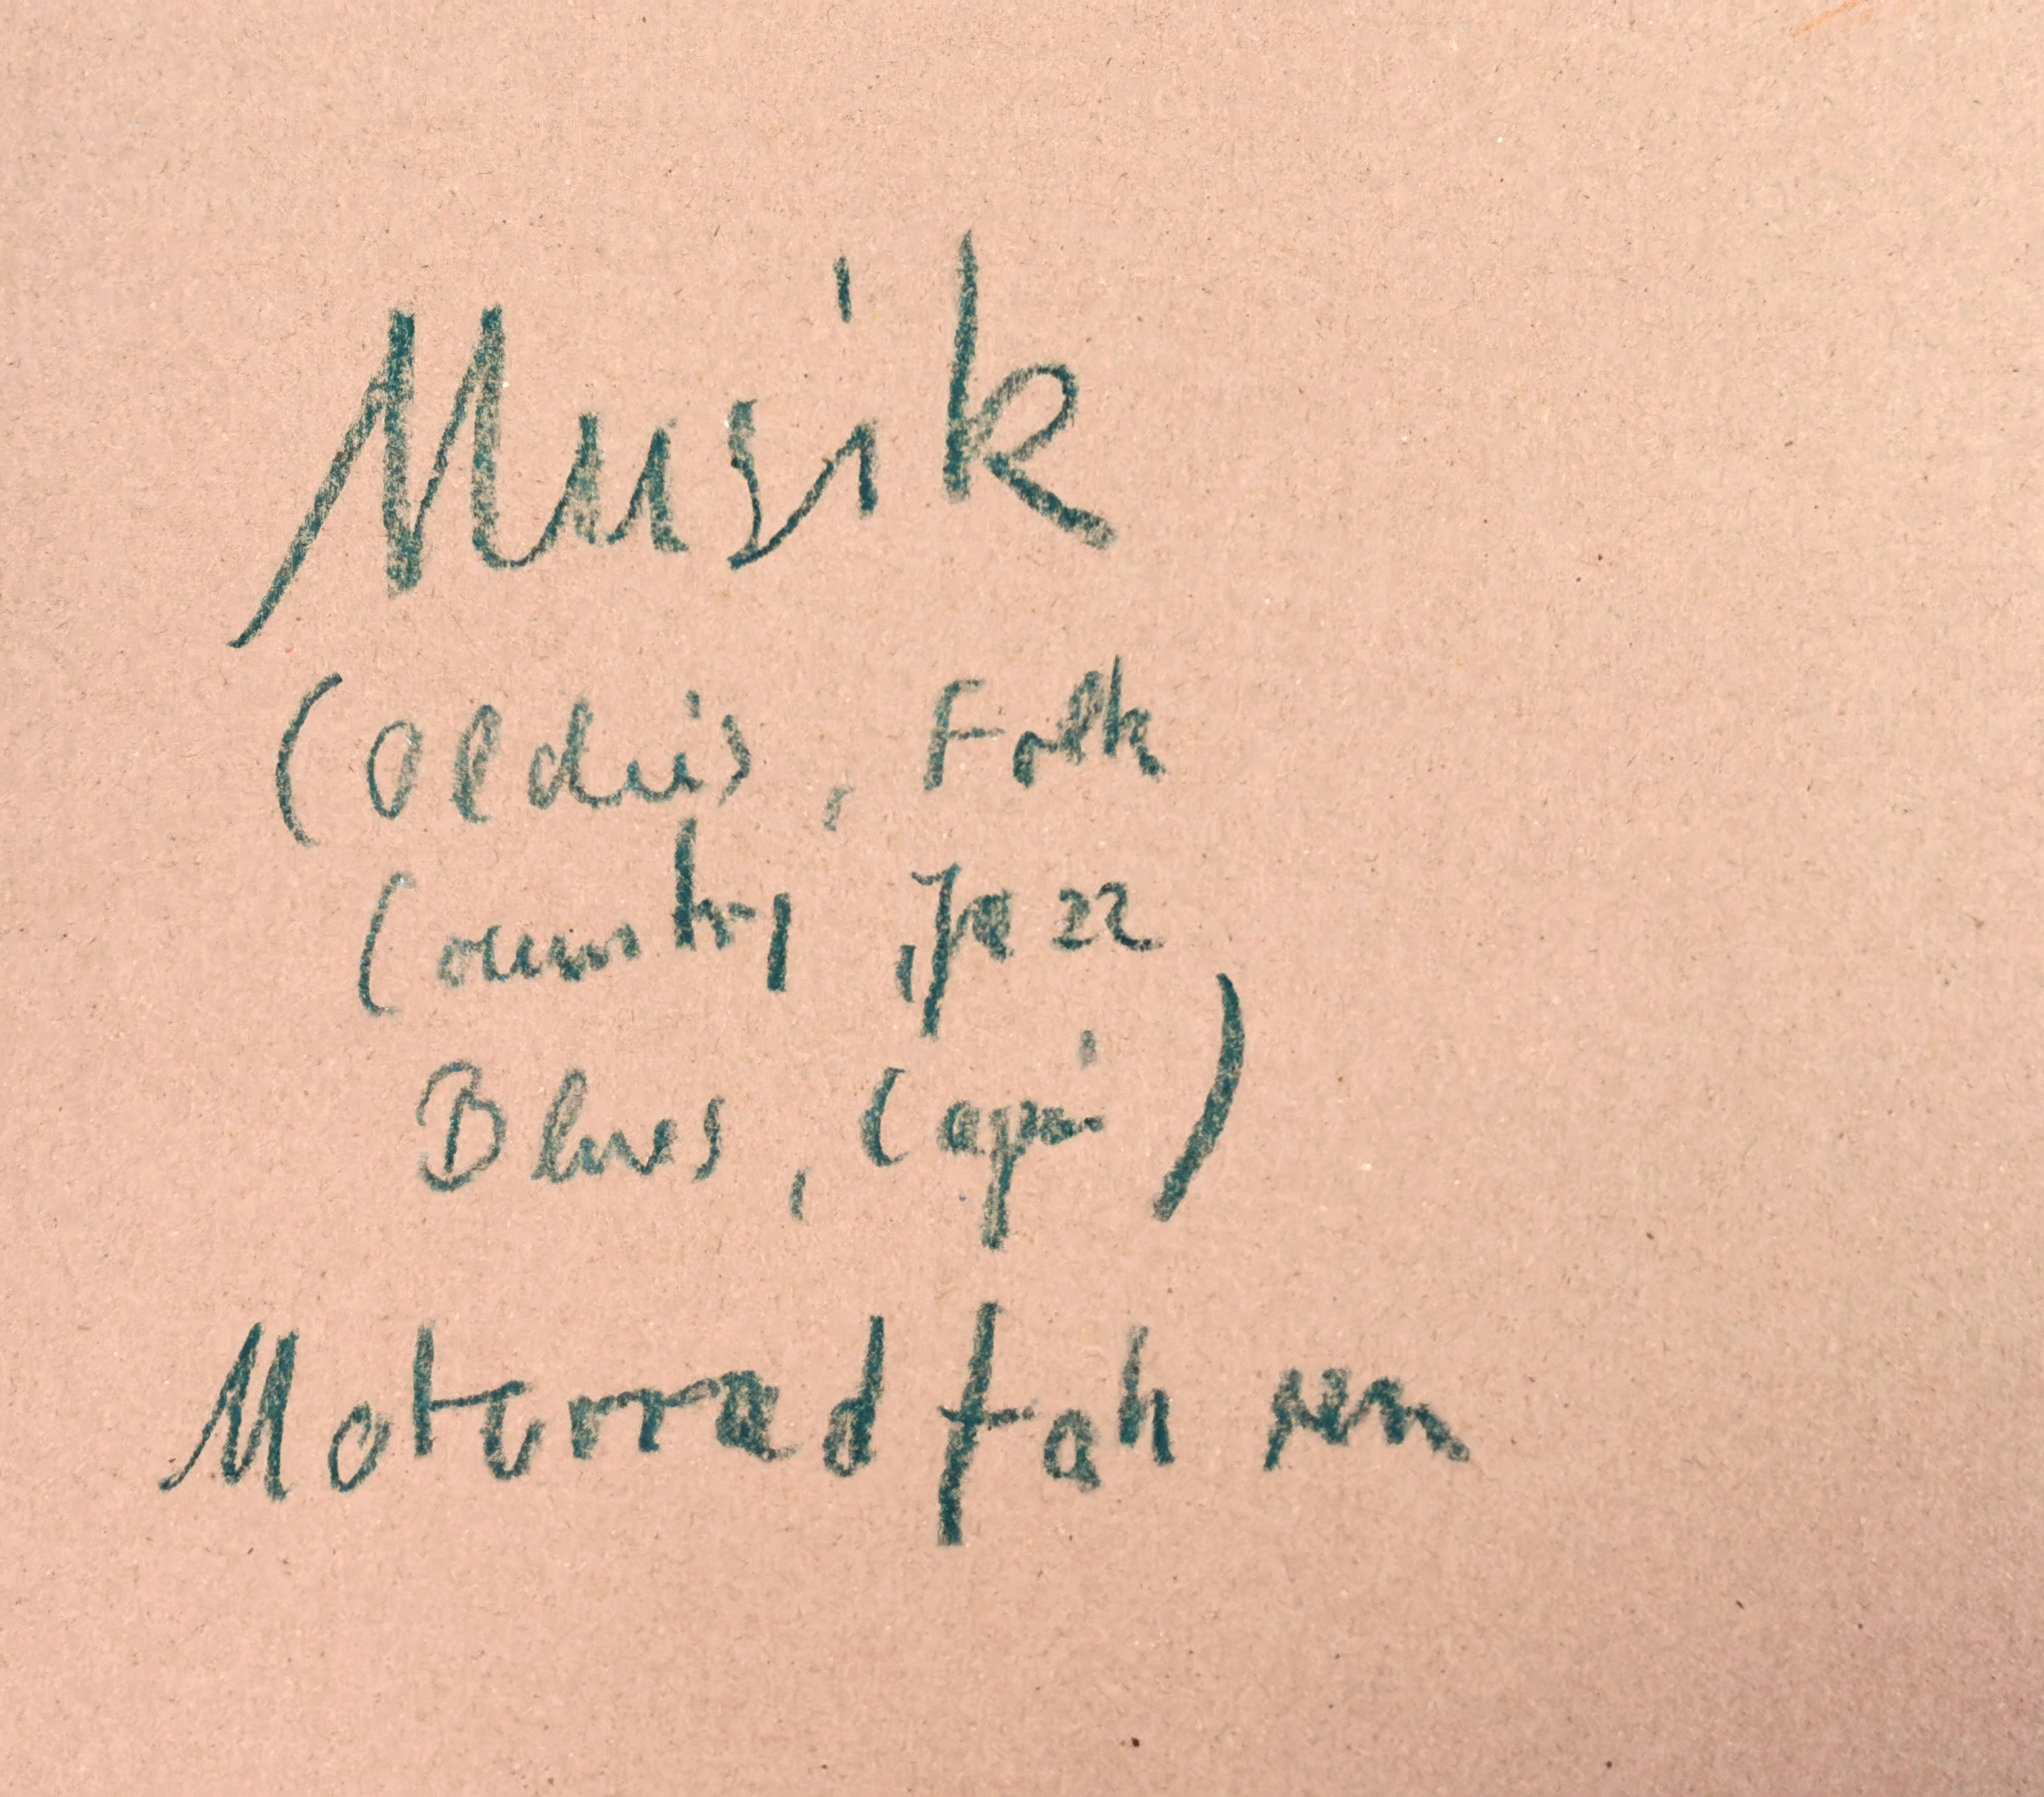 Musik
(Oldies, Folk
Country, Jazz
Blues, Capri)
Motorradfahren